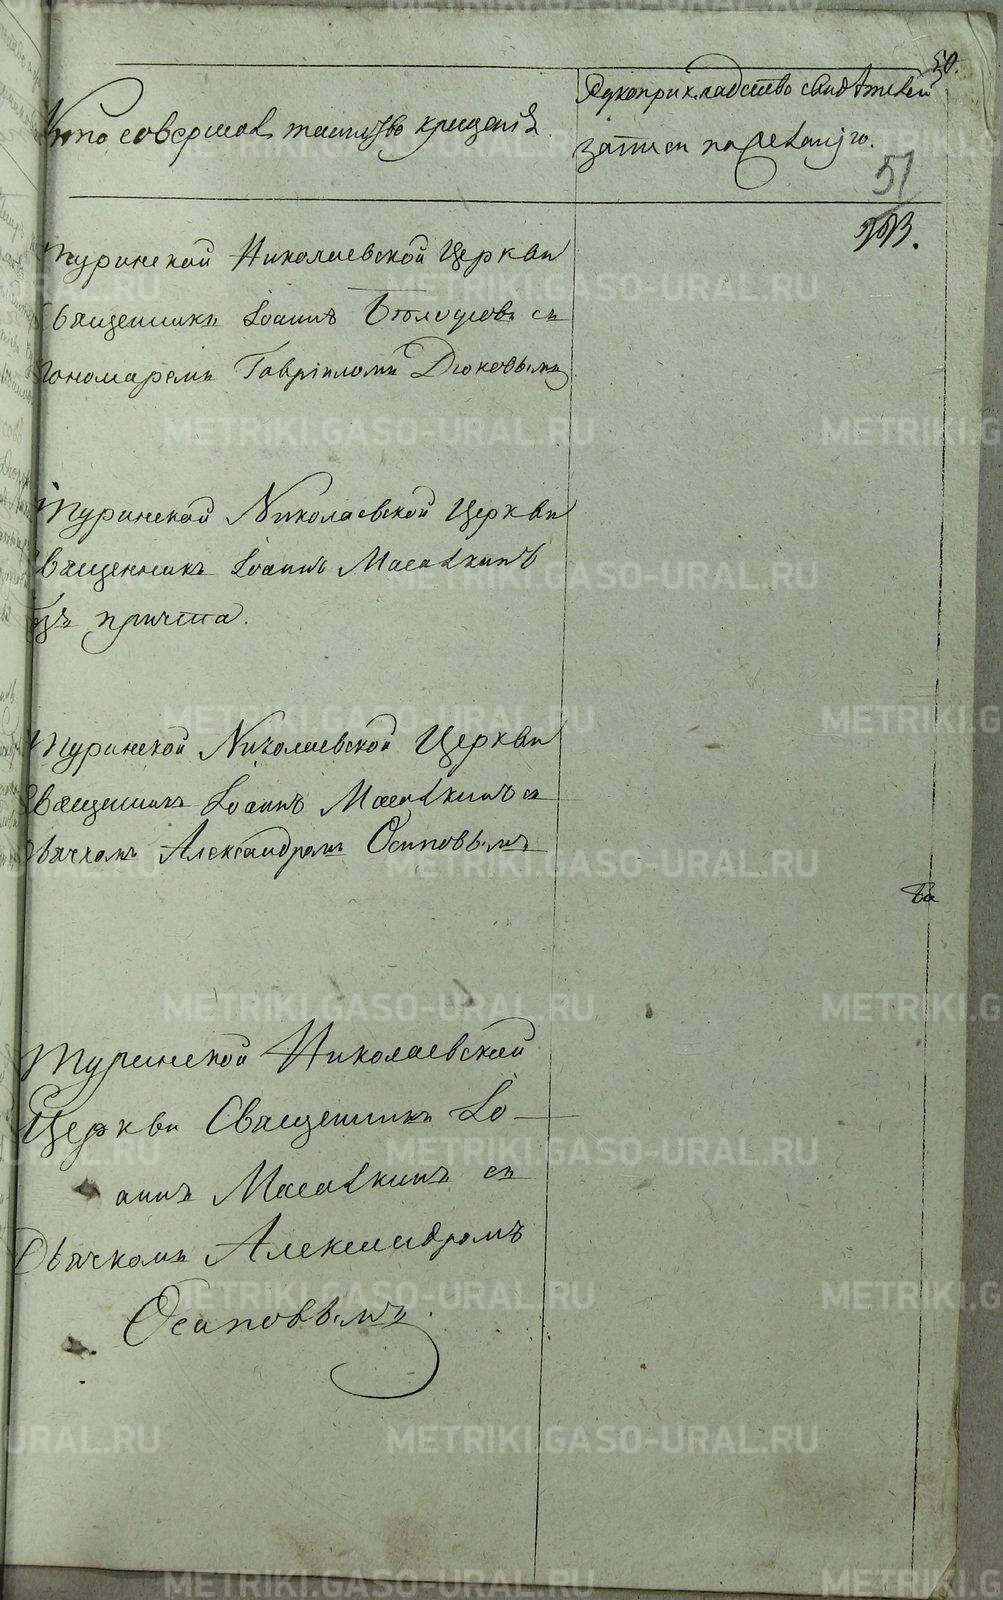 50.
Кто совершалъ таинство крещенія.
Рукоприкладство свидѣтелей
записи по желанію.
51
Туринской Николаевской Церкви
Священникъ Іоаннъ съ
пономаремъ Гавріиломъ Дюковымъ
Туринской Николаевской Церкви
Священникъ Іоаннъ Масалкинъ
причта.
Туринской Николаевской Церкви
Священникъ Іоаннъ Масалкинъ съ
дьячкомъ Александромъ Осиповымъ
Туринской Николаевской
Церкви Священникъ Іо-
аннъ Масалкинъ съ
Дьячкомъ Александромъ
Осиповымъ.
METRIKI.GASO-URAL.RU